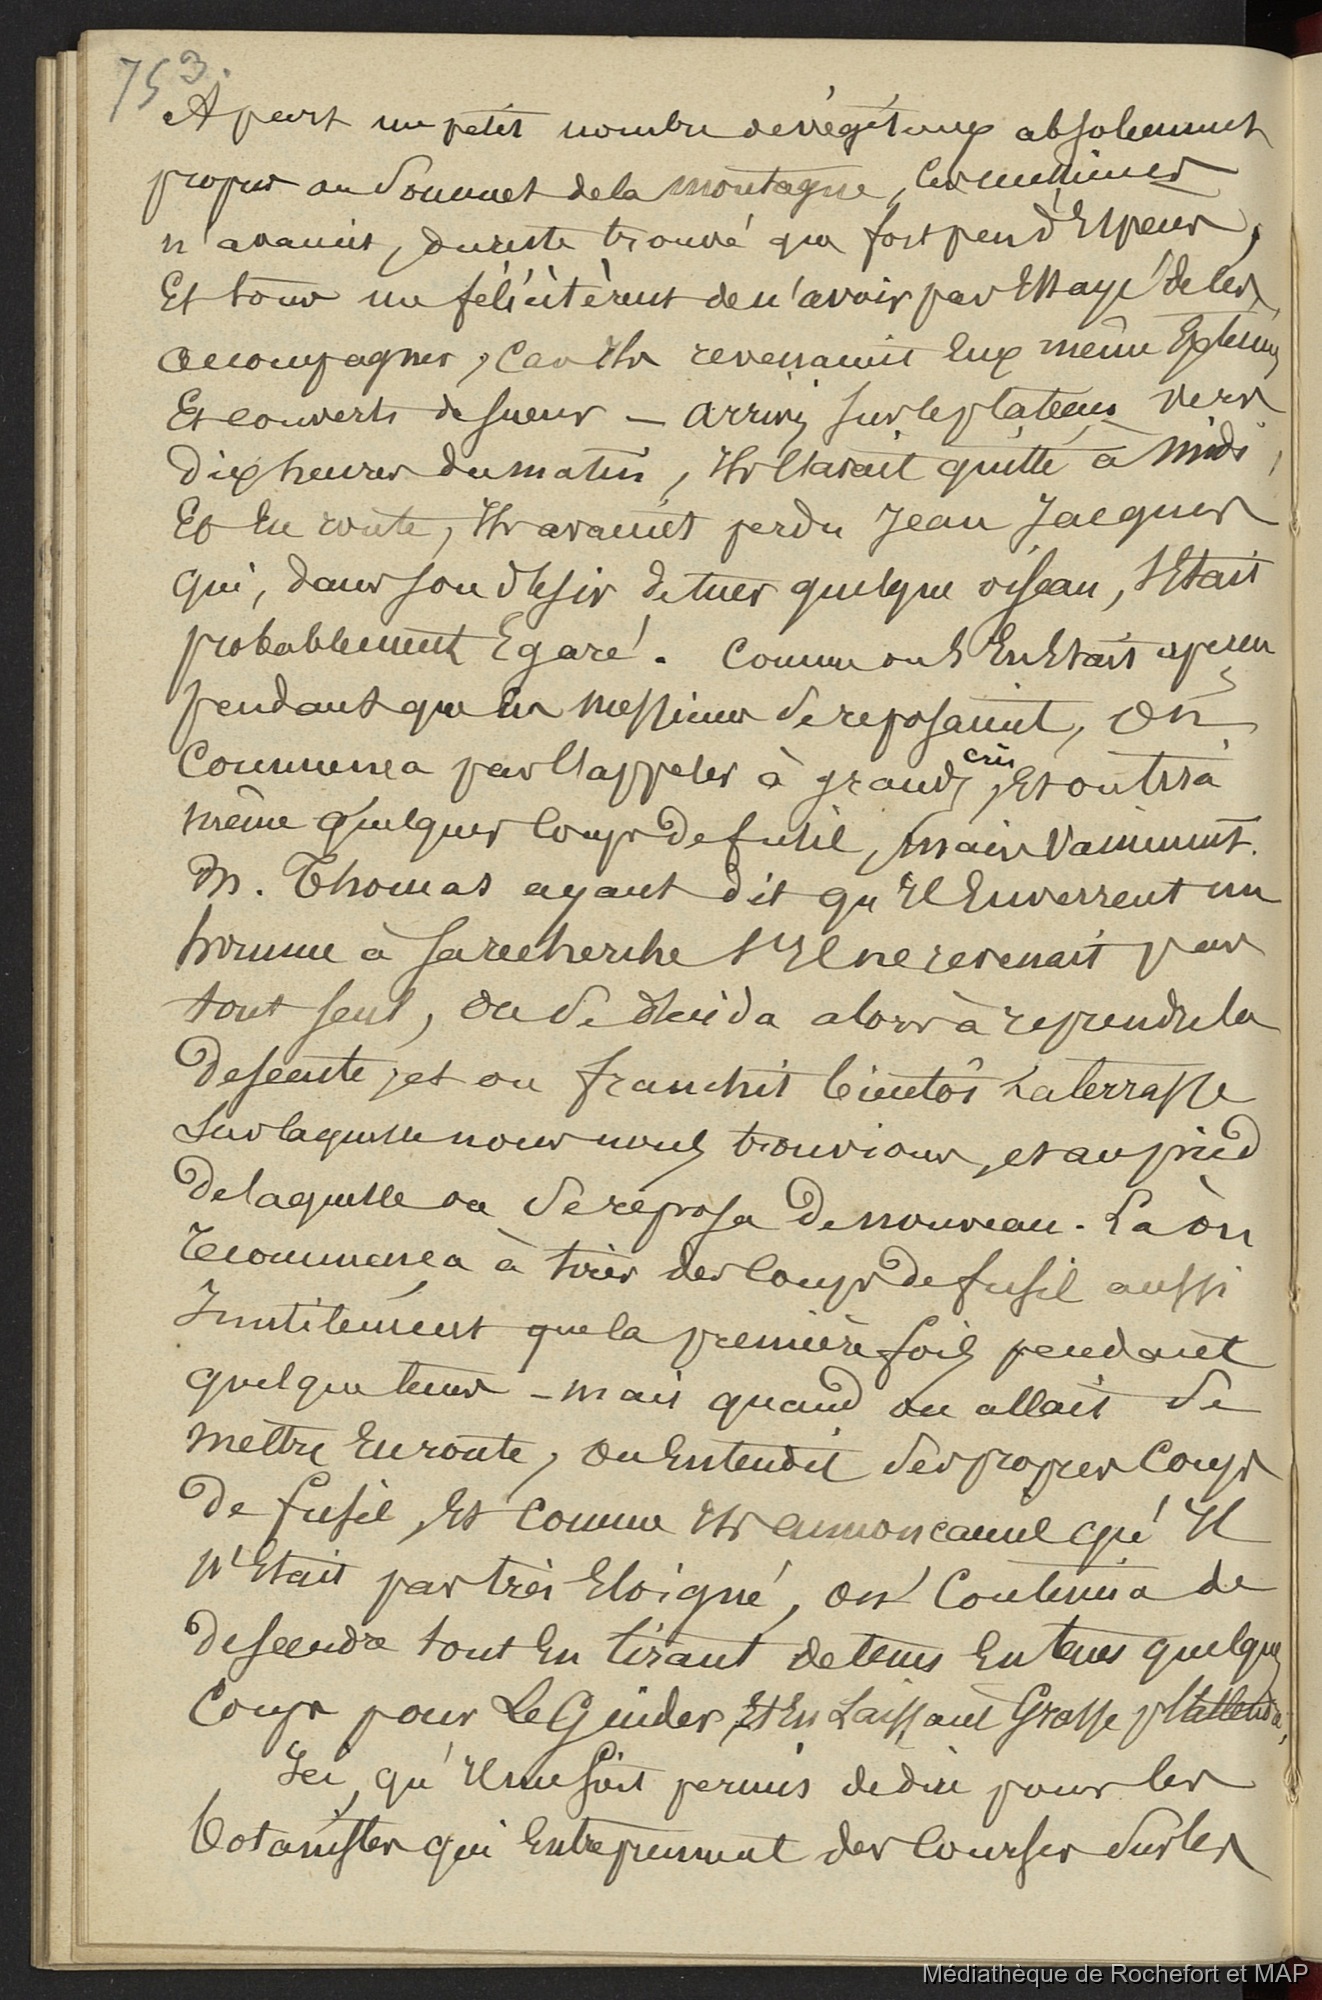 753.
A part un petit nombre de végétaux absolument
propres au Sommet de la montagne, ces messieurs
n'avaient, du reste trouvé que fort peu d'Espèces,
Et tous me félicitèrent de n'avoir pas Essayé de les
accompagner, car Ils revenaient Eux même
Et couverts de sueur — arrivés sur le plateau vers
dix heures du matin, Ils l'avait quitté à midi,
Et En route, Ils avaient perdu Jean Jacques
qui, dans son désir de tuer quelque oiseau, s'Etait
probablement Egaré. Comme on s'En Etait aperçu
pendant que les messieurs se reposaient, on
commença par l'appeler à grands cris, Et on tira
même quelques coups de fusil, mais vainement.
M. Thomas ayant dit qu'Il Enverrent un
homme à sa recherche s'Il ne revenait pas
tout seul, on se décida alors à reprendre la
descente, et on franchit bientôt La terrasse
sur laquelle nous nous trouvions, et au pied
de laquelle on se reposa de nouveau. Là on
recommença à tirer des coups de fusil aussi
Inutilement que la première fois pendant
quelque tems — mais quand on allait se
mettre En route, on Entendit ses propres coups
de fusil, Et comme Ils annoncaient qu'Il
n'Etait pas très Eloigné, on continua de
descendre tout En tirant de tems En tems quelques
coups pour Le Guider, Et En Laissant Grosse
Ici, qu'Il me soit permis de dire pour les
botanistes qui Entreprennent des courses sur les
Médiathèque de Rochefort et MAP